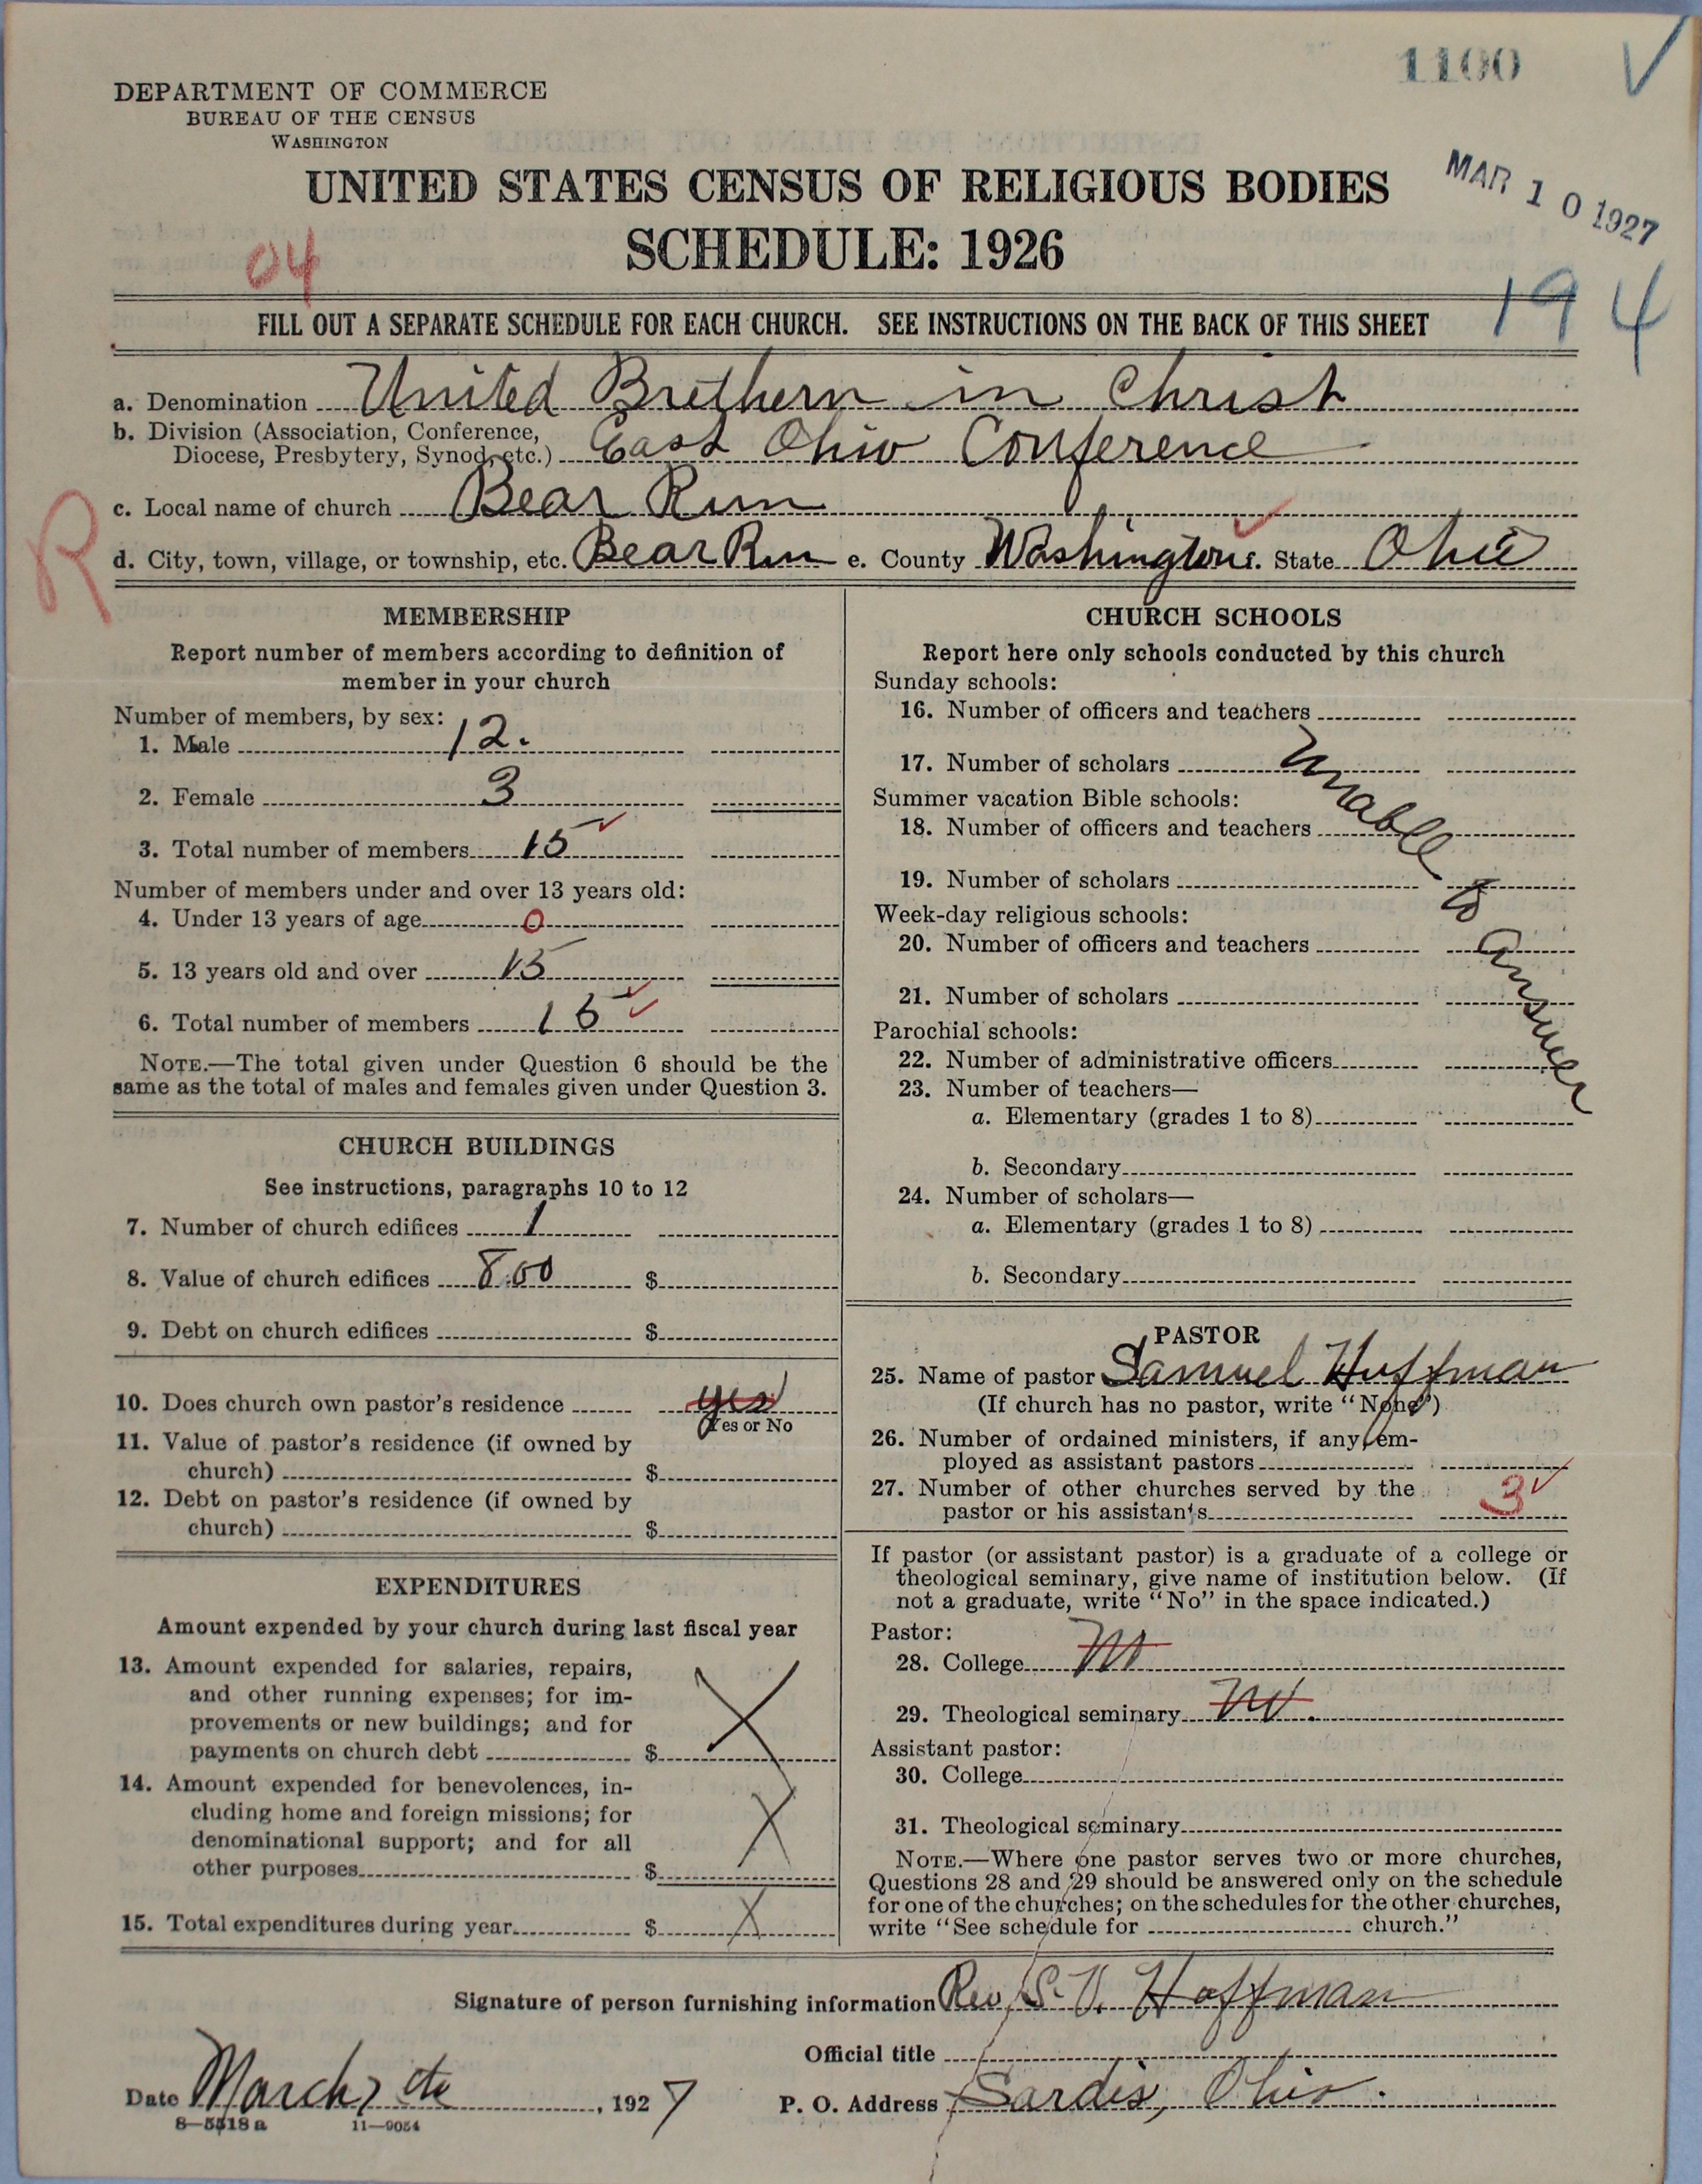 1100
DEPARTMENT OF COMMERCE
BUREAU OF THE CENSUS
WASHINGTON
UNITED STATES CENSUS OF RELIGIOUS BODIES
MAR 10 1927
SCHEDULE: 1926
04
194
FILL OUT A SEPARATE SCHEDULE FOR EACH CHURCH. SEE INSTRUCTIONS ON THE BACK OF THIS SHEET
a. Denomination United Brethern in Christ
b. Division (Association, Conference,
Diocese, Presbytery, Synod, etc.) East Ohio Conference
c. Local name of church Bear Run
R
d. City, town, village, or township, etc. Bear Run e. County Washington f. State Ohio
MEMBERSHIP
Report number of members according to definition of
member in your church
Number of members, by sex:
1. Male 12.
2. Female 3
3. Total number of members 15
Number of members under and over 13 years old:
4. Under 13 years of age 0
5. 13 years old and over 15
6. Total number of members 15
NOTE.—The total given under Question 6 should be the
same as the total of males and females given under Question 3.
CHURCH BUILDINGS
See instructions, paragraphs 10 to 12
7. Number of church edifices 1
8. Value of church edifices 800 $
9. Debt on church edifices $
10. Does church own pastor's residence yes
(Yes or No
11. Value of pastor's residence (if owned by
church) $
12. Debt on pastor's residence (if owned by
church) $
EXPENDITURES
Amount expended by your church during last fiscal year
13. Amount expended for salaries, repairs,
and other running expenses; for im-
provements or new buildings; and for
payments on church debt $ X
14. Amount expended for benevolences, in-
cluding home and foreign missions; for
denominational support; and for all
other purposes $ X
15. Total expenditures during year $ X
CHURCH SCHOOLS
Report here only schools conducted by this church
Sunday schools:
16. Number of officers and teachers
17. Number of scholars
Summer vacation Bible schools:
18. Number of officers and teachers
19. Number of scholars
Week-day religious schools:
20. Number of officers and teachers
21. Number of scholars
Parochial schools:
22. Number of administrative officers
23. Number of teachers—
a. Elementary (grades 1 to 8)
b. Secondary
24. Number of scholars—
a. Elementary (grades 1 to 8)
b. Secondary
Unable to answer
PASTOR
25. Name of pastor Samuel Huffman
(If church has no pastor, write "None")
26. Number of ordained ministers, if any, em-
ployed as assistant pastors
27. Number of other churches served by the
pastor or his assistants 3
If pastor (or assistant pastor) is a graduate of a college or
theological seminary, give name of institution below. (If
not a graduate, write "No" in the space indicated.)
Pastor:
28. College No
29. Theological seminary No.
Assistant pastor:
30. College
31. Theological seminary
NOTE.—Where one pastor serves two or more churches,
Questions 28 and 29 should be answered only on the schedule
for one of the churches; on the schedules for the other churches,
write "See schedule for church."
Signature of person furnishing information Rev S. V. Hoffman
Official title
Date March 7 th, 1927
P. O. Address Sardis, Ohio.
8—5518 a 11—9054